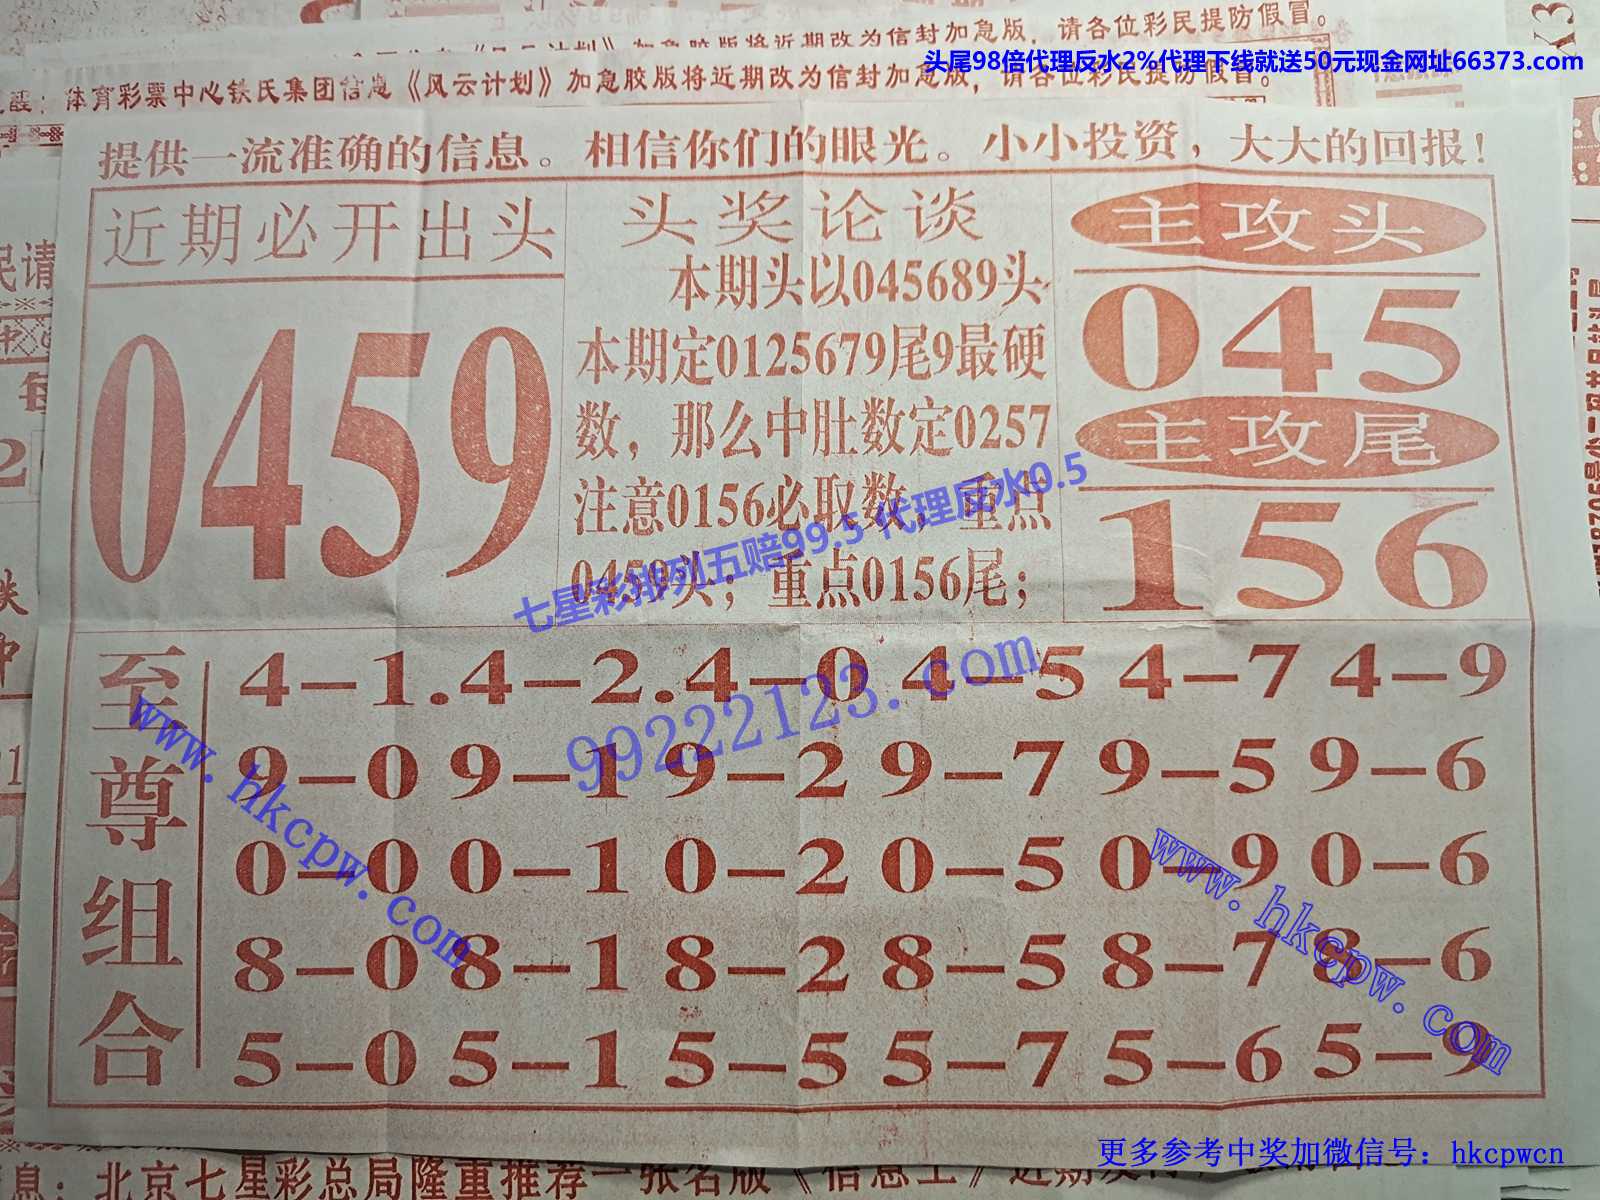 加急胶版将近期改为信封加急版，请各位彩民提防假冒。
头尾98倍代理反水2%代理下线就送50元现金网址66373.com
体育彩票中心铁氏集团信息《风云计划》加急胶版将近期改为信封加急版，请各位彩民提防假冒。
提供一流准确的信息。相信你们的眼光。小小投资，大大的回报！
近期必开出头
0459
头奖论谈
本期头以045689头
本期定0125679尾9最硬
数，那么中肚数定0257
注意0156必取数，重点
0459头；重点0156尾；
主攻头
045
主攻尾
156
七星彩排列五赔99.5 代理反水0.5
99222123.com
至尊组合
4－1.4－2.4－0 4－5 4－7 4－9
9－0 9－1 9－2 9－7 9－5 9－6
0－0 0－1 0－2 0－5 0－9 0－6
8－0 8－1 8－2 8－5 8－7 8－6
5－0 5－1 5－5 5－7 5－6 5－9
www.hkcpw.com
www.hkcpw.com
更多参考中奖加微信号：hkcpwcn
息：北京七星彩总局隆重推荐一张名版《信息王》近期发行